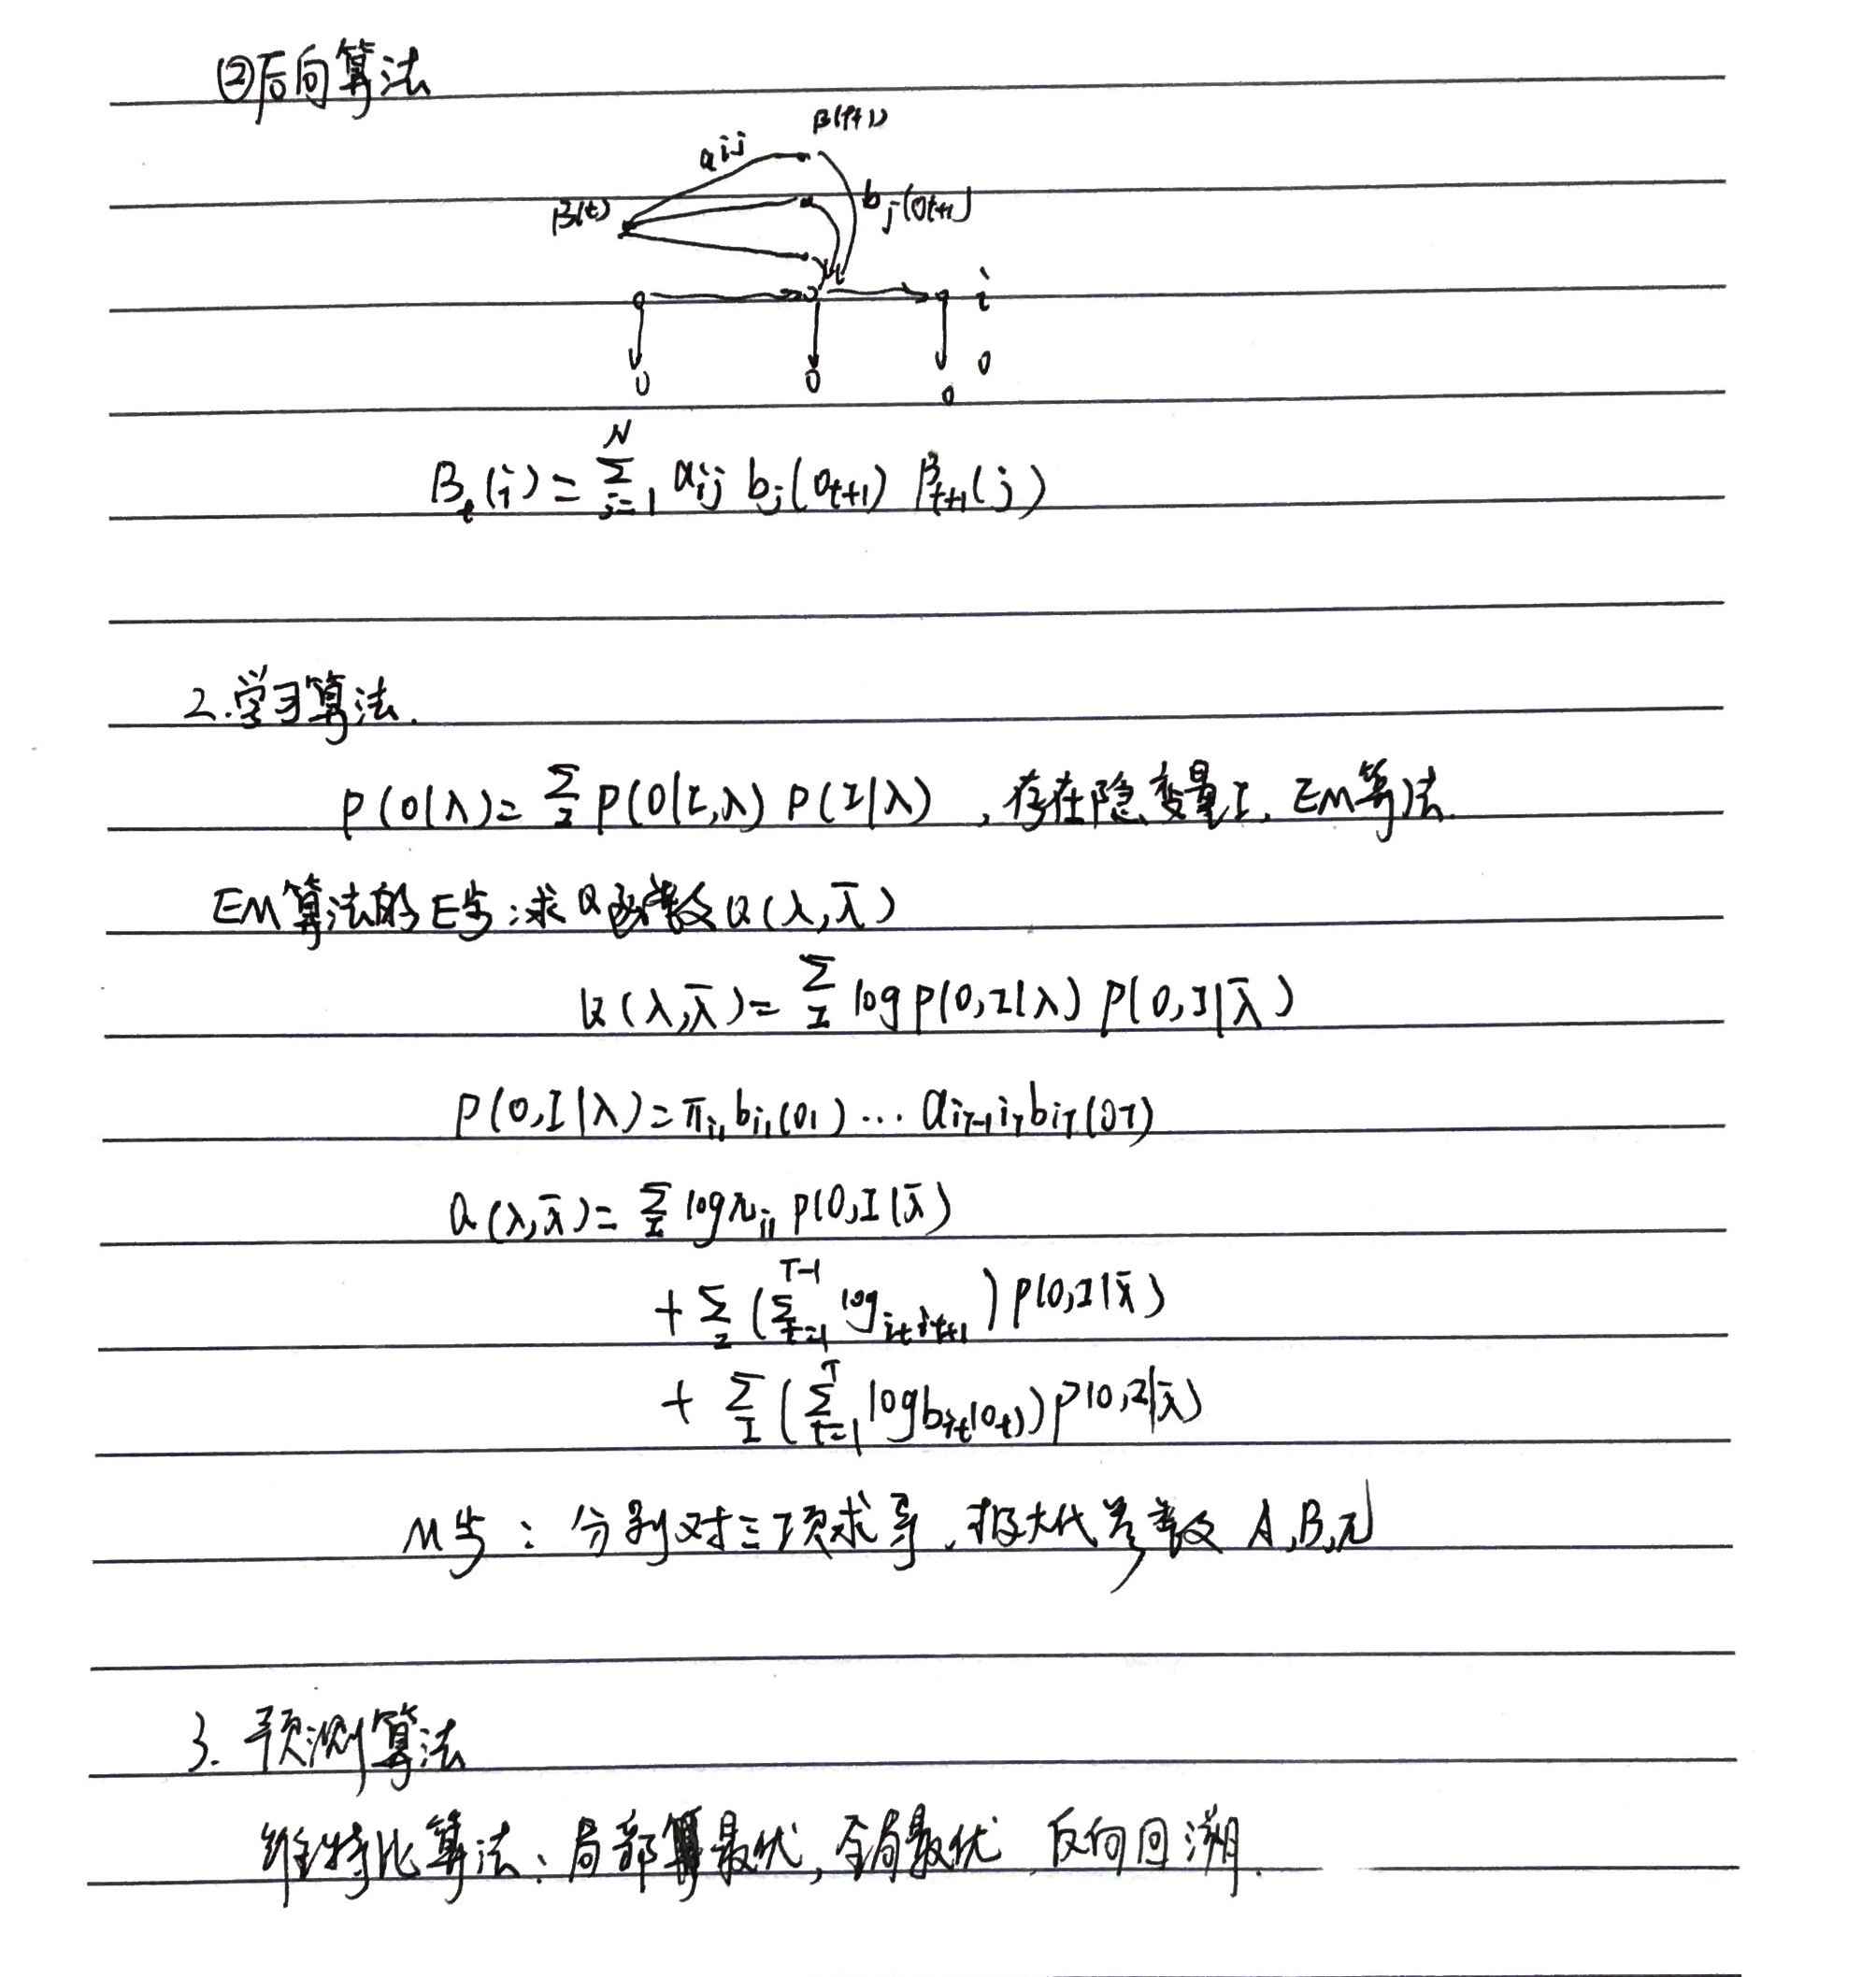 ②后向算法
β(t+1)
aij
β(t)
bj(Ot+1)
i
O
O O O
βt(i) = Σ_{j=1}^{N} aij bj(Ot+1) βt+1(j)
2.学习算法.
P(O|λ) = Σ_I P(O|I,λ) P(I|λ) , 存在隐变量I, EM算法.
EM算法的E步:求Q函数Q(λ,λ̄)
Q(λ,λ̄) = Σ_I log P(O,I|λ) P(O,I|λ̄)
P(O,I|λ) = πi1 bi1(O1) ... aiT-1iT biT(OT)
Q(λ,λ̄) = Σ_I log πi1 P(O,I|λ̄)
+ Σ_I (Σ_{t=1}^{T-1} log it it+1) P(O,I|λ̄)
+ Σ_I (Σ_{t=1}^{T} log bit(Ot)) P(O,I|λ̄)
M步:分别对三项求导,极大化参数 A,B,π
3. 预测算法
维特比算法、局部最优,全局最优 反向回溯.